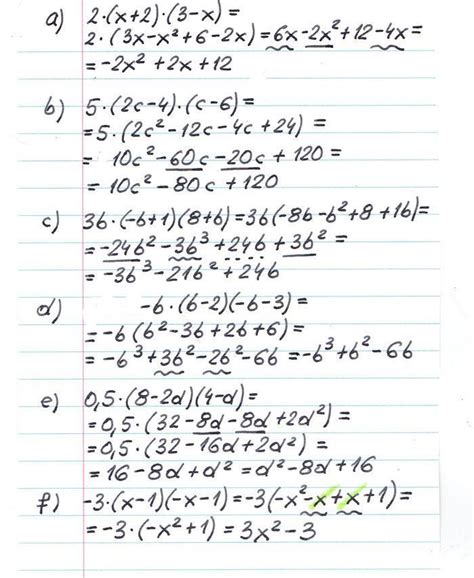 a) 2·(x+2)·(3-x)=
2·(3x-x²+6-2x)=6x-2x²+12-4x=
=-2x²+2x+12
b) 5·(2c-4)·(c-6)=
=5·(2c²-12c-4c+24)=
= 10c²-60c-20c+120=
= 10c²-80c+120
c) 3b·(-b+1)(8+b)=3b(-8b-b²+8+1b)=
=-24b²-3b³+24b+3b²=
=-3b³-21b²+24b
d) -b·(b-2)(-b-3)=
=-b(b²-3b+2b+6)=
=-b³+3b²-2b²-6b=-b³+b²-6b
e) 0,5·(8-2d)(4-d)=
=0,5·(32-8d-8d+2d²)=
=0,5·(32-16d+2d²)=
=16-8d+d²=d²-8d+16
f) -3·(x-1)(-x-1)=-3(-x²-x+x+1)=
=-3·(-x²+1)=3x²-3